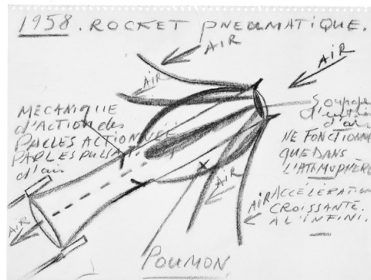 1958. ROCKET PNEUMATIQUE.
AIR
AIR
AIR
MECANIQUE
d'ACTION des
PAR LES
d'air
Soupape
NE FONCTIONNE
QUE DANS
L'ATMOSPHÈRE
AIR
AIR
ACCÉLÉRATION
CROISSANTE.
A L'INFINI.
AIR
POUMON